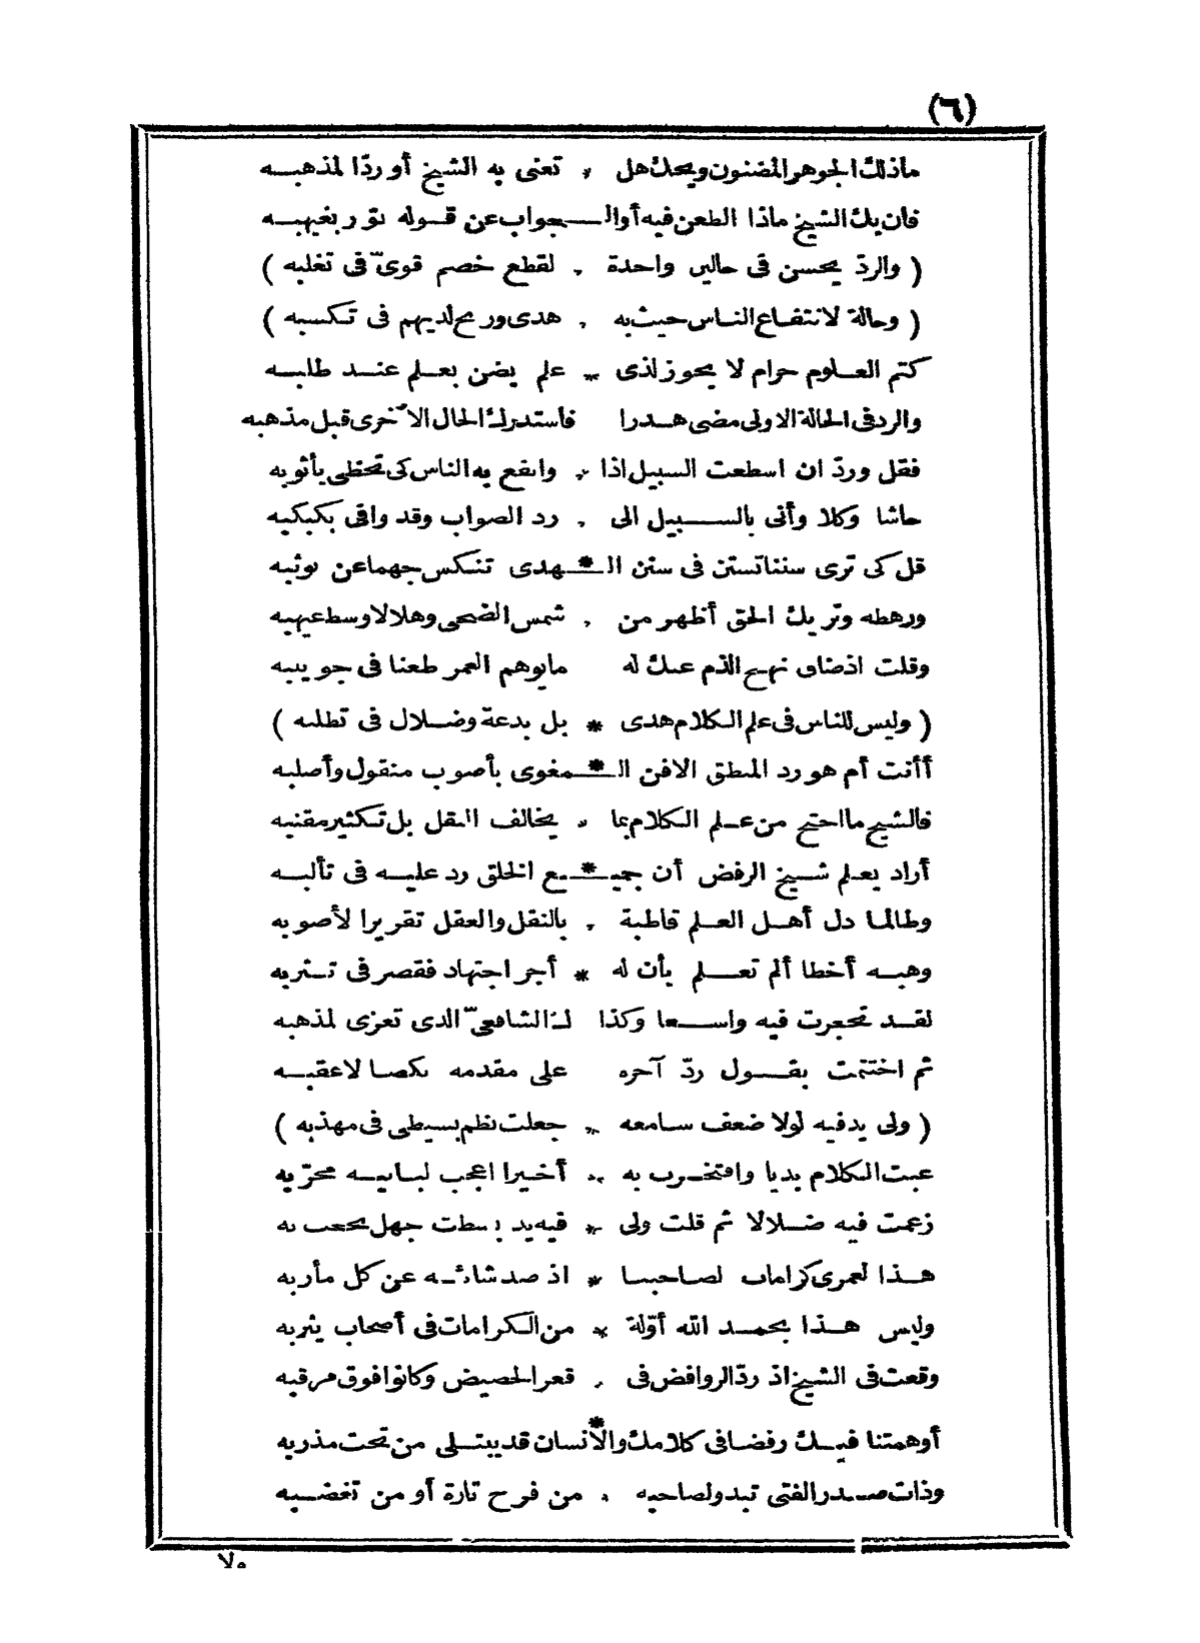 (٦)
ماذلك الجوهر المضنون ويحك هل * تعنى به الشيخ أو ردّا لمذهبه
فان يك الشيخ ماذا الطعن فيه أوالـجواب عن قوله نور بغيهبه
( والردّ يحسن فى حالين واحدة * لقطع خصم قوىّ فى تغلبه )
( وحالة لانتفاع الناس حيث به * هدى وربح لديهم فى تكسبه )
كتم العلوم حرام لا يجوز لذى * علم يضن بعلم عند طلبه
والرد فى الحالة الاولى مضى هدرا فاستدرك الحال الاخرى قبل مذهبه
فقل وردّ ان اسطعت السبيل اذا * وانفع به الناس كى تحظى بأثوبه
حاشا وكلا وأنى بالسبيل الى * رد الصواب وقد وافى بكبكبه
قل كى ترى سننا تستن فى سنن الـ*ـهدى تنكس جهما عن توثبه
ورهطه وتريك الحق أظهر من * شمس الضحى وهلالا وسط غيهبه
وقلت اذ ضاق نهج الذم عنك له مايوهم الغمر طعنا فى جوينبه
( وليس للناس فى علم الكلام هدى * بل بدعة وضلال فى تطلبه )
أأنت أم هو رد المنطق الافن الـ*ـمغوى بأصوب منقول وأصلبه
فالشيخ ما احتج من علم الكلام بما * يخالف النقل بل تكثير مقنبه
أراد يعلم شيخ الرفض أن جميـ*ـع الخلق رد عليه فى تألبه
وطالما دل أهل العلم قاطبة * بالنقل والعقل تقريرا لأصوبه
وهبه أخطا ألم تعلم بأن له * أجر اجتهاد فقصر فى تثربه
لقد تحجرت فيه واسعا وكذا لك الشافعىّ الذى تعزى لمذهبه
ثم اختتمت بقول ردّ آخره على مقدمه نكصا لاعقبه
( ولى يد فيه لولا ضعف سامعه * جعلت نظم بسيطى فى مهذبه )
عبت الكلام بديا وافتخرت به * أخيرا اعجب لبانيه مخرّبه
زعمت فيه ضلالا ثم قلت ولى * فيه يد بسطت جهل بحعب به
هذا لعمرى كرامات لصاحبنا * اذ صد شانئه عن كل مأربه
وليس هذا بحمد الله أوّلة * من الكرامات فى أصحاب يثربه
وقعت فى الشيخ اذ ردّ الروافض فى * قعر الحضيض وكانوا فوق مرقبه
أوهمتنا فيك رفضا فى كلامك والا*نسان قد يبتلى من تحت مذربه
وذات صدر الفتى تبدو لصاحبه * من فرح تارة أو من تغضبه
ولا